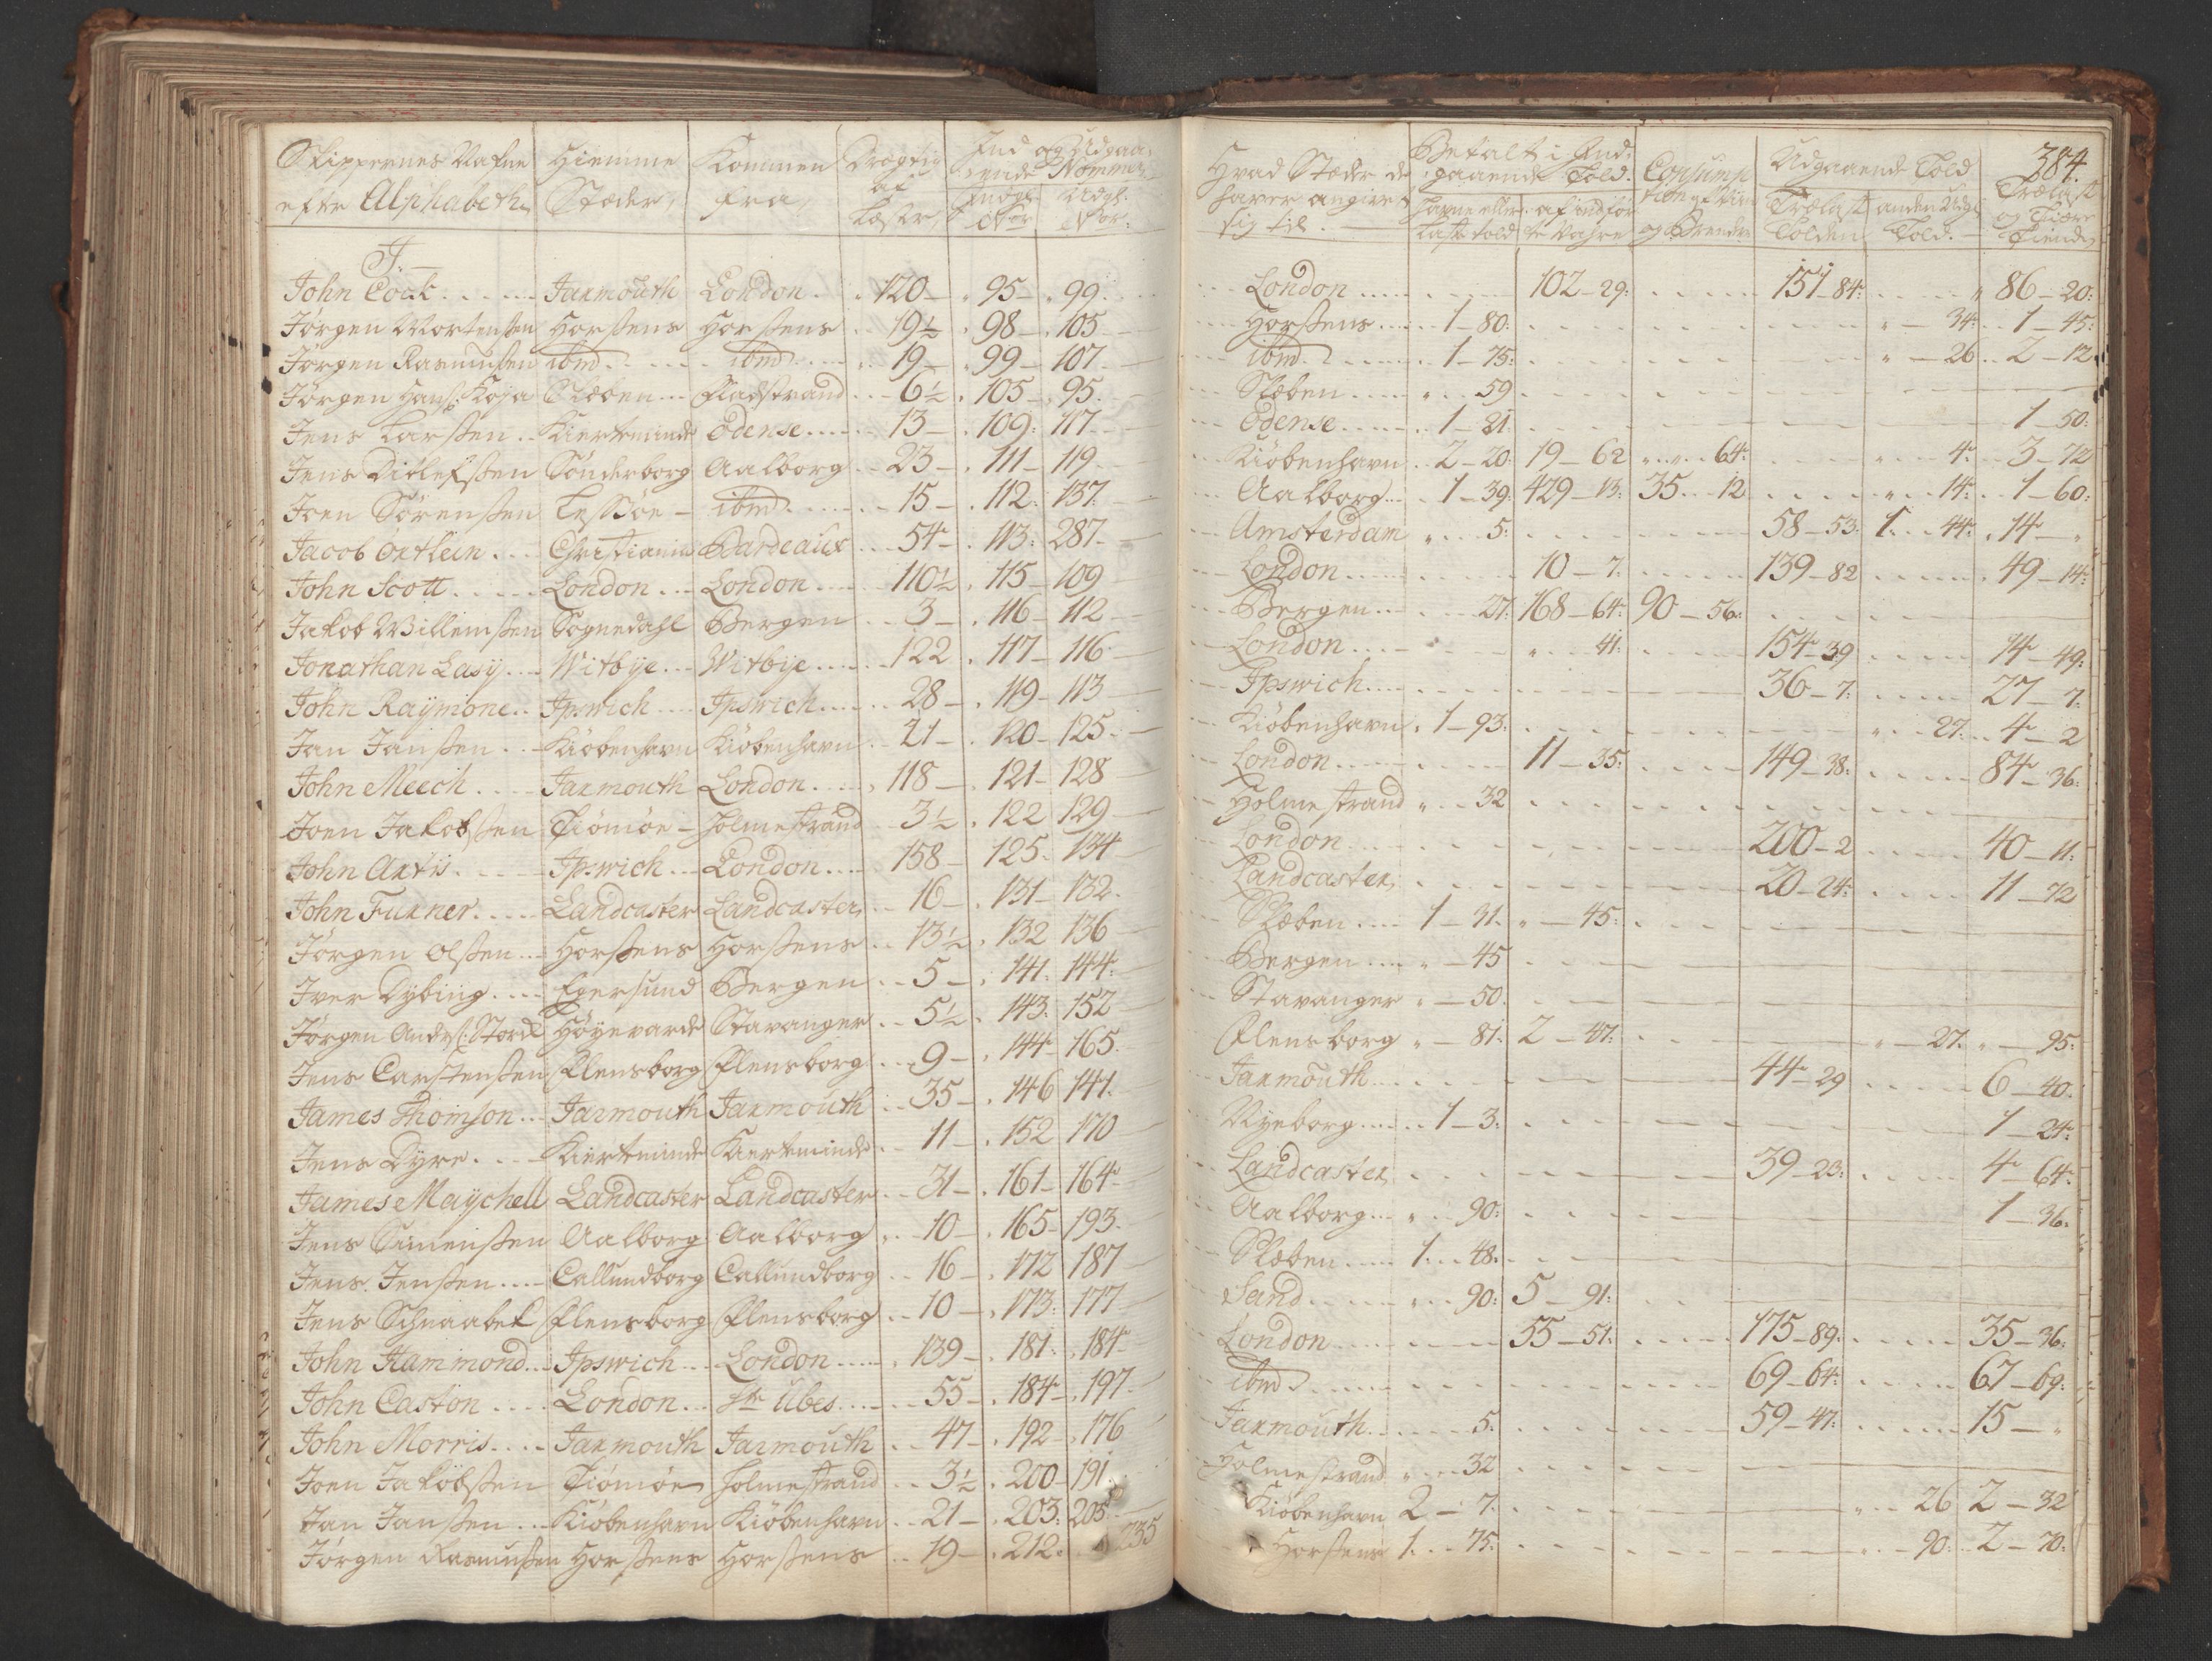 Skippernes Nafne efter Alphabeth | Hiemme Stæder | Kommen fra | Drægtig af Læster | Ind og Udgaaende Nommer | Indg: No | Udg: No
J.
John Cock | Jarmouth | London | 120 | 95 | 99
Jørgen Mortensen | Horsens | Horsens | 19½ | 98 | 105
Jørgen Rasmussen | ibm | ibm | 19 | 99 | 107
Jørgen Hans: Koja | Sæben | Fladstrand | 6½ | 105 | 95
Jens Larsen | Kierteminde | Odense | 13 | 109 | 117
Jens Ditlefsen | Sønderborg | Aalborg | 23 | 111 | 119
Joen Sørensen | Lessøe | ibm | 15 | 112 | 137
Jacob Ortlein | Christiania | Bardeaux | 54 | 113 | 287
John Scott | London | London | 110½ | 115 | 109
Jakob Willemsen | Sognedahl | Bergen | 3 | 116 | 112
Jonathan Lasy | Witbye | Witbye | 122 | 117 | 116
John Raymone | Ipswich | Ipswich | 28 | 119 | 113
Jan Jansen | Kiøbenhavn | Kiøbenhavn | 21 | 120 | 125
John Meech | Jarmouth | London | 118 | 121 | 128
Joen Jakobsen | Tiømøe | Holmestrand | 3½ | 122 | 129
John Artis | Ipswich | London | 158 | 125 | 134
John Furner | Landcaster | Landcaster | 16 | 131 | 132
Jørgen Olsen | Horsens | Horsens | 13½ | 132 | 136
Iver Dybing | Egersund | Bergen | 5 | 141 | 144
Jørgen Anders: Stord | Høyevarde | Stavanger | 5½ | 143 | 152
Jens Carstensen | Flensborg | Flensborg | 9 | 144 | 165
James Thomson | Jarmouth | Jarmouth | 35 | 146 | 141
Jens Dyre | Kierteminde | Kierteminde | 11 | 152 | 170
James Maychell | Landcaster | Landcaster | 31 | 161 | 164
Jens Simensen | Aalborg | Aalborg | 10 | 165 | 193
Jens Jensen | Callundborg | Callundborg | 16 | 172 | 187
Jens Schnaabel | Flensborg | Flensborg | 10 | 173 | 177
John Hammond | Ipswich | London | 139 | 181 | 184
John Caston | London | St Ubes | 55 | 184 | 197
John Morris | Jarmouth | Jarmouth | 47 | 192 | 176
Joen Jakobsen | Tiømøe | Holmestrand | 3½ | 200 | 191
Jan Jansen | Kiøbenhavn | Kiøbenhavn | 21 | 203 | 205
Jørgen Rasmussen | Horsens | Horsens | 19 | 212 | 235
384.
Hvad Stæder de haver angivet sig til | Betalt i Indgaaende Told | Havne eller Laste told | af indførte Vahre | Consumption | Udgaaende Told | Trælast Tolden | anden Udg: Told | Trælast og Tiære Tiende
London | 102-29 | 151-84 | 86-20
Horsens | 1-80 | 34 | 1-45
ibm | 1-75 | 26 | 2-12
Sæben | 59
Odense | 1-21 | 1-50
Kiøbenhavn | 2-20 | 19-62 | 64 | 4 | 3-72
Aalborg | 1-39 | 429-13 | 35-12 | 14 | 1-60
Amsterdam | 5 | 58-53 | 1-44 | 14
London | 10-7 | 139-82 | 49-14
Bergen | 27 | 168-64 | 90-56
London | 41 | 154-39 | 74-49
Ipswich | 36-7 | 27-7
Kiøbenhavn | 1-93 | 27 | 4-2
London | 11-35 | 149-38 | 84-36
Holmestrand | 32
London | 200-2 | 40-11
Landcaster | 20-24 | 11-72
Sæben | 1-31 | 45
Bergen | 45
Stavanger | 50
Flensborg | 81 | 2-47 | 27 | 95
Jarmouth | 44-29 | 6-40
Nyeborg | 1-3 | 1-24
Landcaster | 39-23 | 4-64
Aalborg | 90 | 1-36
Sæben | 1-48
Sand | 90 | 5-91
London | 55-51 | 175-89 | 35-36
ibm | 69-64 | 67-69
Jarmouth | 5 | 59-47 | 15
Holmestrand | 32
Kiøbenhavn | 2-7 | 26 | 2-32
Horsens | 1-75 | 90 | 2-70